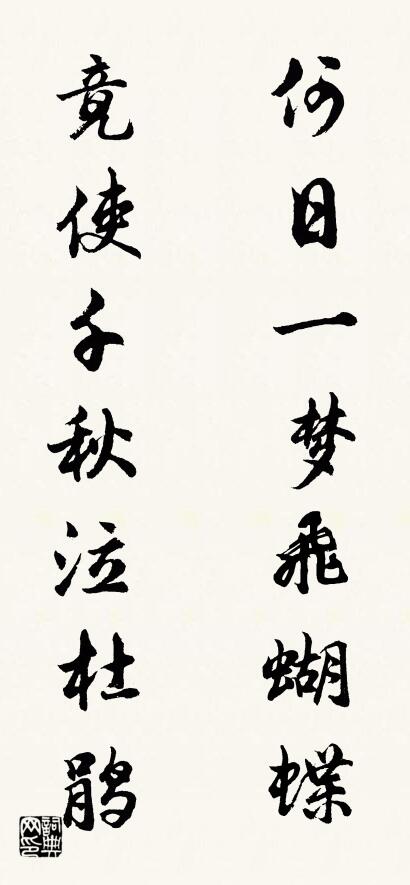 何日一梦飞蝴蝶
竟使千秋泣杜鹃
詞典网印